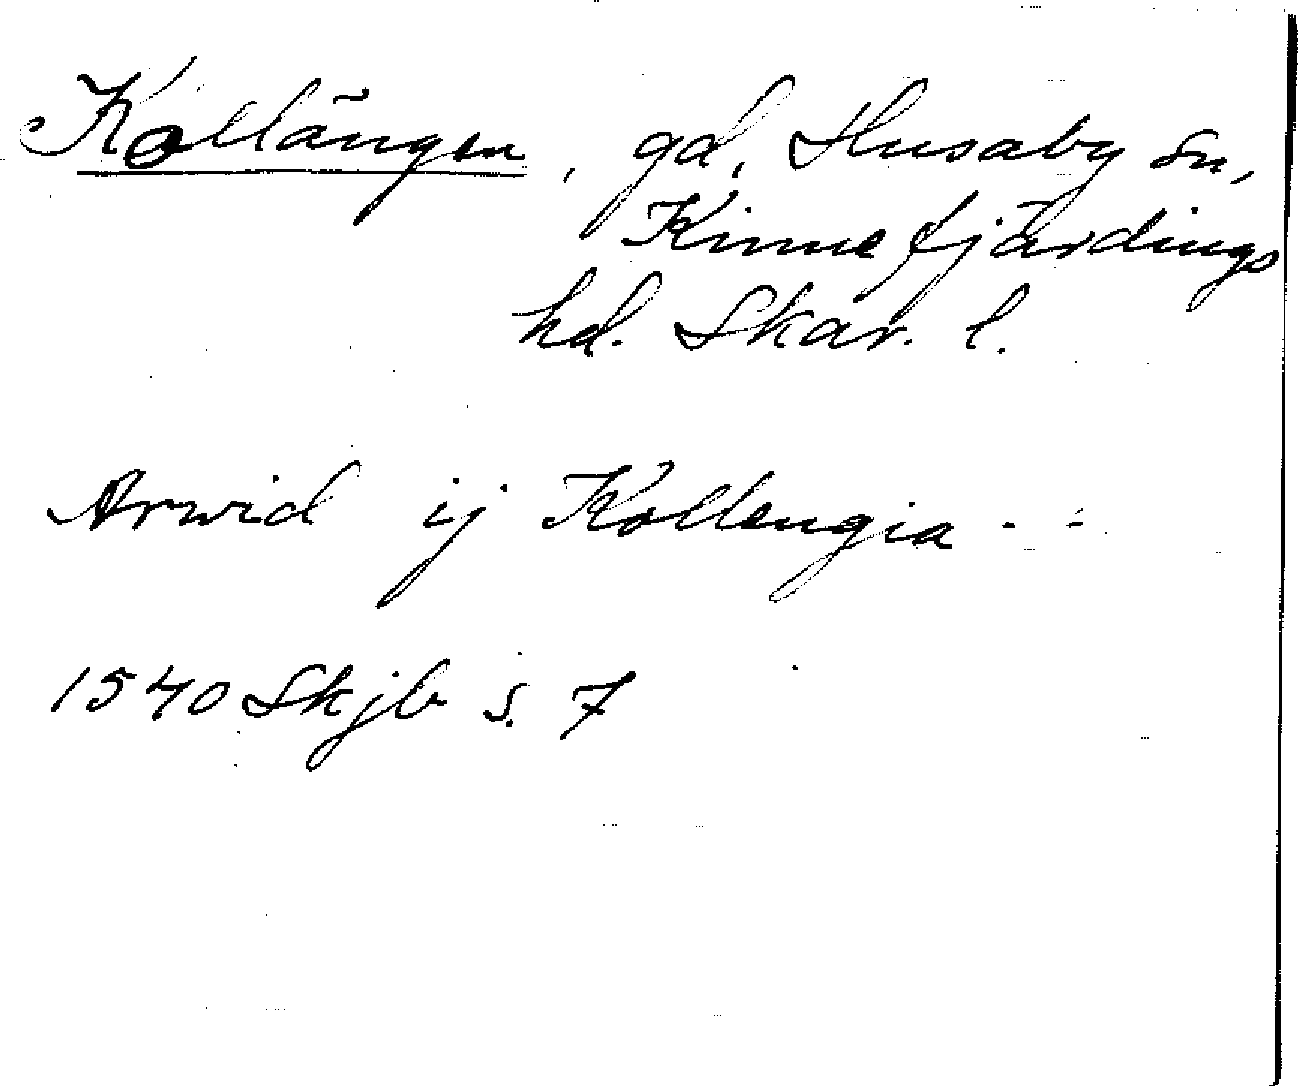 Kollängen, gd, Husaby sn,
Kinnefjärdings
hd. Skar. l.
Arwid ij Kollengia - -
1540 Skjb s. 7